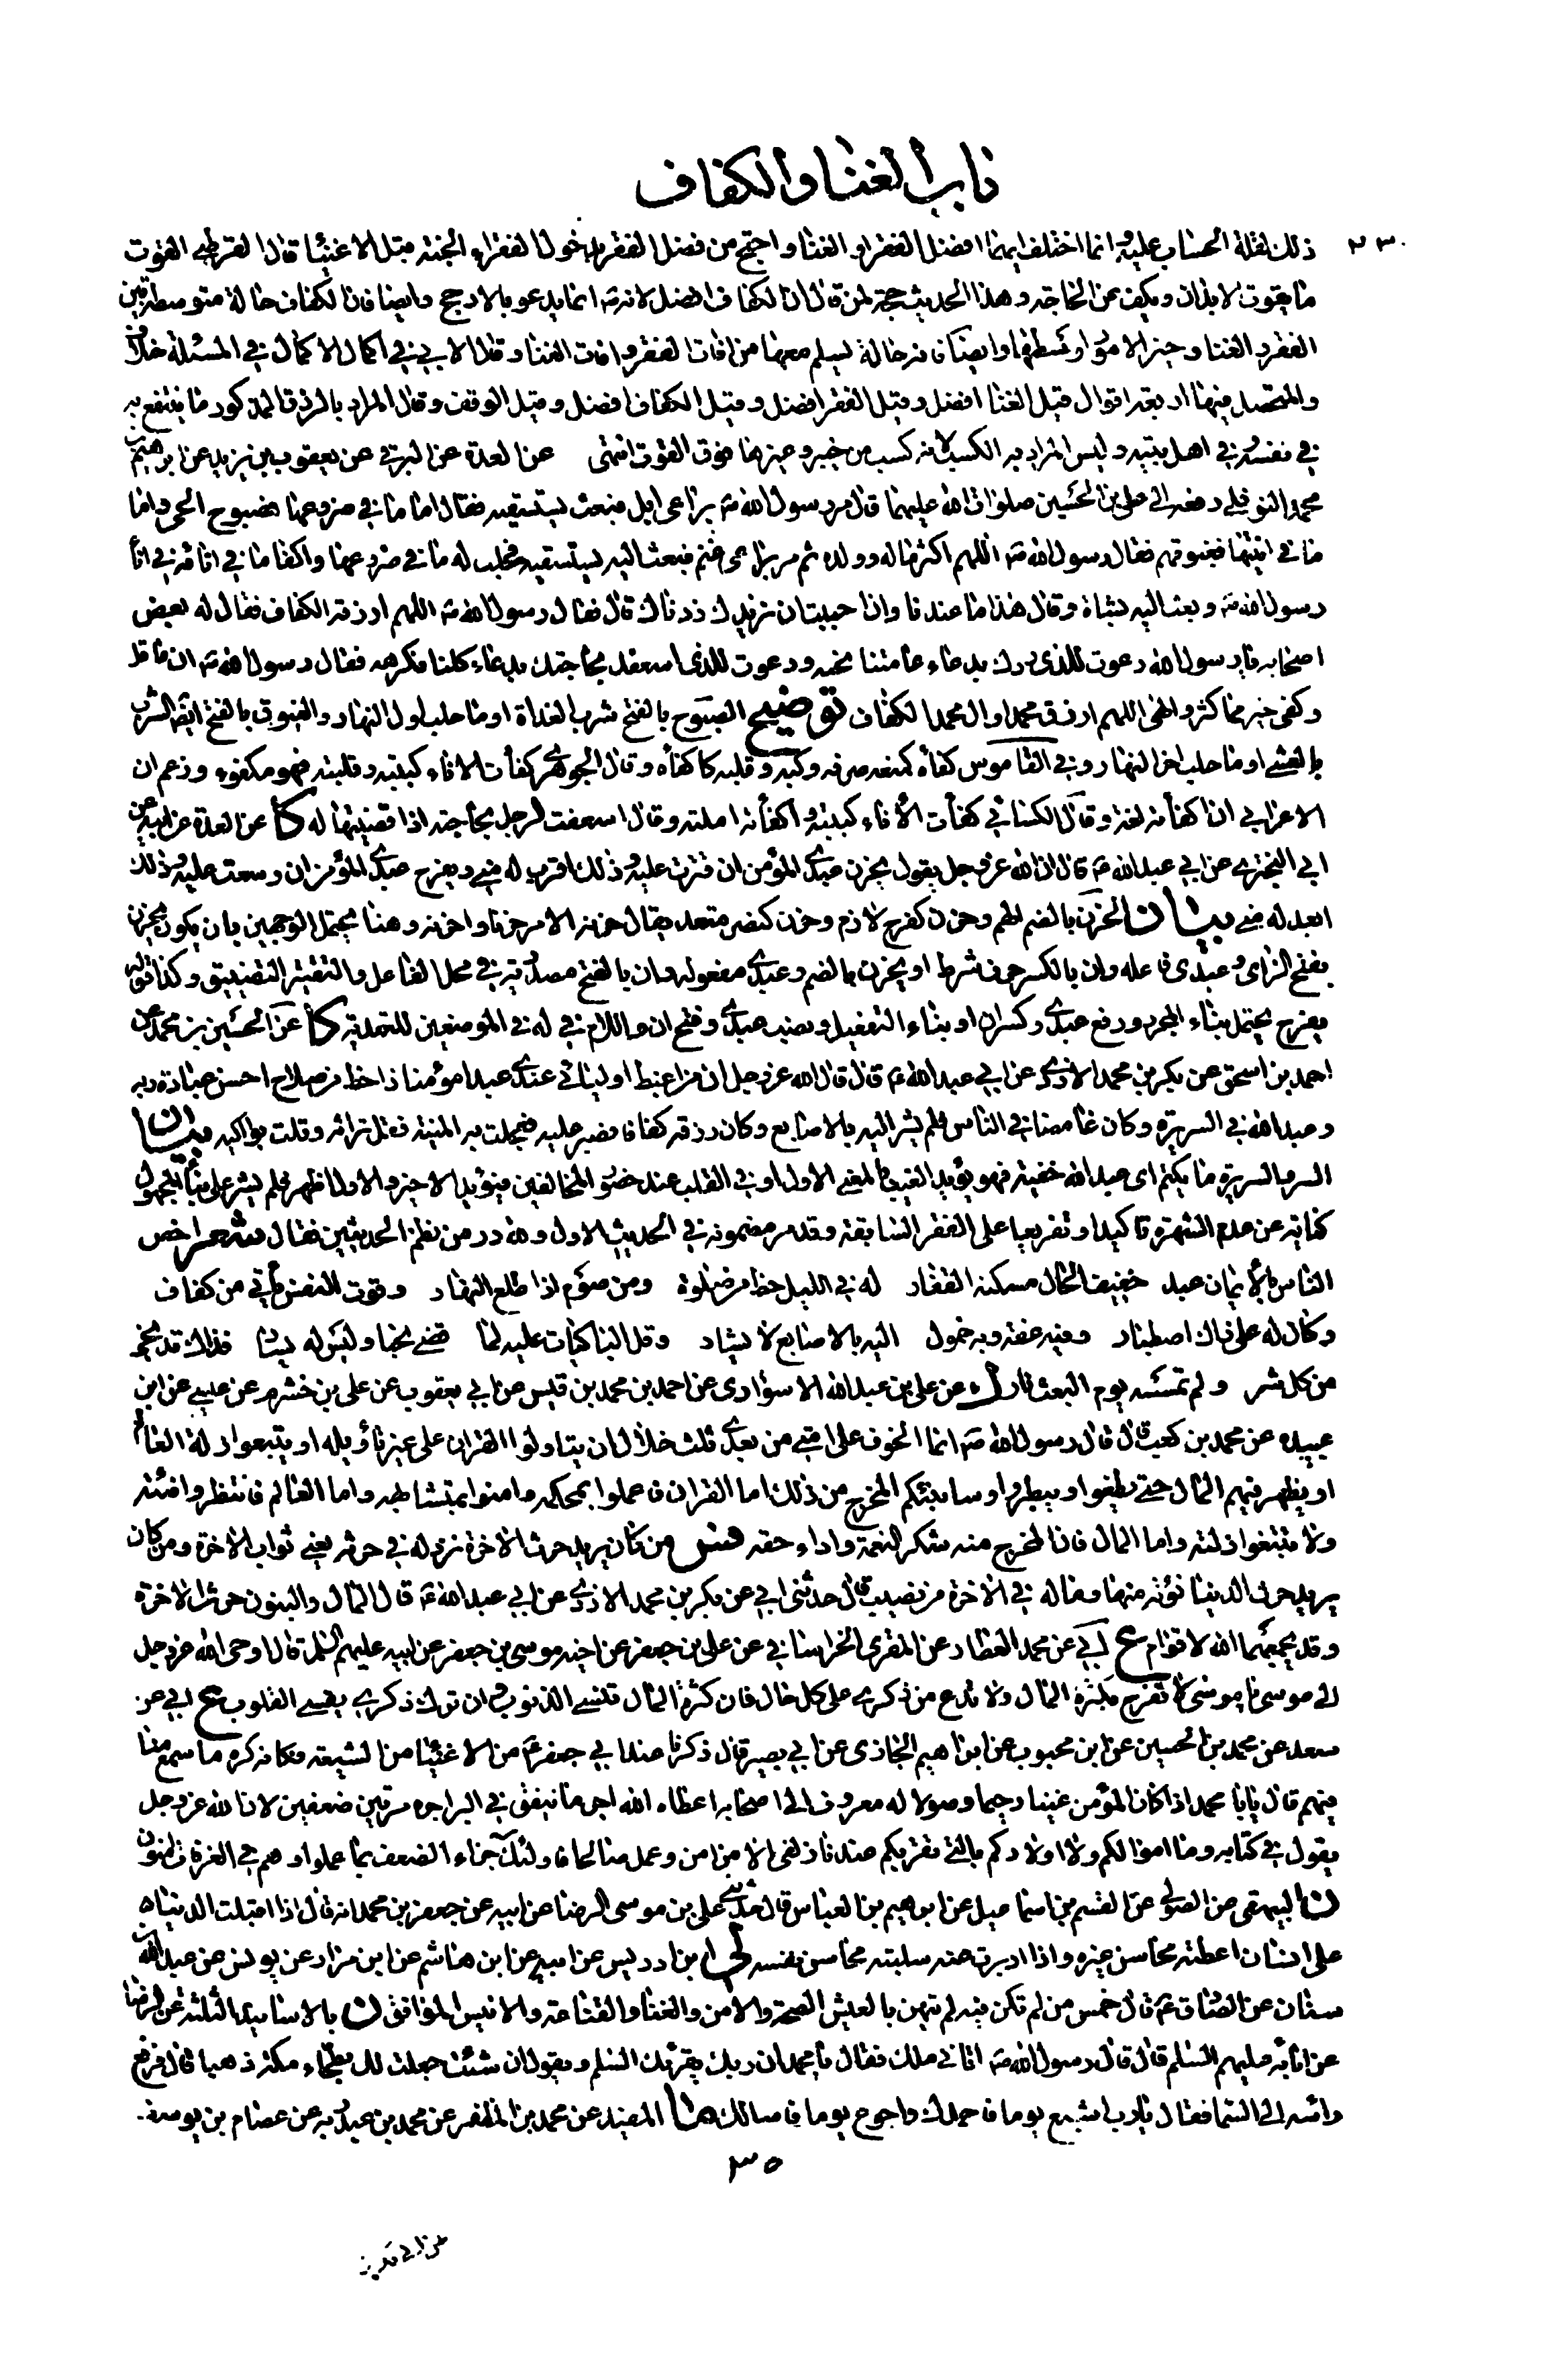 باب الغنا والكفاف
٢٣٠
ذلك لقلة الحساب عليه وانما اختلف ايهما افضل الفقر او الغنا واحتج من فضل الفقر بدخول الفقراء الجنة قبل الاغنيا قال القرطبي القوت
ما يقوت الابدان ويكف عن الحاجة وهذا الحديث حجة لمن قال ان الكفاف افضل لانه ص انما يدعو بالارجح وايضا فان الكفاف حالة متوسطة بين
الفقر و الغنا وخير الامور اوسطها وايضا فانه حالة يسلم معها من افات الفقر و افات الغنا وقال الابي في اكمال الاكمال في المسئلة خلاف
والمتحصل فيها اربعة اقوال قيل الغنا افضل وقيل الفقر افضل وقيل الكفاف افضل وقيل الوقف وقال المراد بالرزق المذكور ما ينتفع به
في نفسه وفي اهل بيته وليس المراد به الكسب لانه كسب من خيبر وغيرها فوق القوت انتهى عن العدة عن البرقي عن يعقوب بن يزيد عن ابراهيم بن
محمد النوفلي رفعه الى علي بن الحسين صلوات الله عليهما قال مر رسول الله ص براعي ابل فبعث يستسقيه فقال اما ما في ضروعها فصبوح الحي واما
ما في انيتها فغبوقهم فقال رسول الله ص اللهم اكثر ماله وولده ثم مر براعي غنم فبعث اليه يستسقيه فحلب له ما في ضروعها واكفا ما في انائه في انا
رسول الله ص وبعث اليه بشاة وقال هذا ما عندنا وان احببت ان نزيدك زدناك قال فقال رسول الله ص اللهم ارزقه الكفاف فقال له بعض
اصحابه يا رسول الله دعوت للذي ردك بدعاء عامتنا نحبه ودعوت للذي اسعفك بحاجتك بدعاء كلنا نكرهه فقال رسول الله ص ان ما قل
وكفى خير مما كثر والهى اللهم ارزق محمدا وال محمد الكفاف توضيح الصبوح بالفتح شرب الغداة او ما حلب اول النهار والغبوق بالفتح ايضا الشرب
بالعشي او ما حلب اخر النهار وفي القاموس كفأه كمنعه صرفه وكبه وقلبه كاكفأه وقال الجوهري كفأت الاناء كببته وقلبته فهو مكفوء وزعم ابن
الاعرابي ان اكفأته لغة وقال الكسائي كفأت الأناء كببته و اكفأته املته وقال اسعفت الرجل بحاجته اذا قضيتها له كا عن العدة عن ابيه عن
ابي البختري عن ابي عبد الله ع قال ان الله عز وجل يقول يحزن عبدي المؤمن ان قترت عليه وذلك اقرب له مني ويفرح عبدي المؤمن ان وسعت عليه وذلك
ابعد له مني بيان الحزن بالضم الهم وحزن كفرح لازم وحزن كنصر متعد يقال حزنه الامر حزنا واحزنه وهنا يحتمل الوجهين بان يكون يحزن
بفتح الزاي و عبدي فاعله وان بالكسر حرف شرط او يحزن بالضم وعبدي مفعوله وان بالفتح مصدرية في محل الفاعل والتقتير التضييق وكذا قوله
يفرح يحتمل بناء المجرد ورفع عبدي وكسر ان او بناء التفعيل ونصب عبدي وفتح ان واللام في له في الموضعين للتعدية كا عن الحسين بن محمد عن
احمد بن اسحق عن بكر بن محمد الازدي عن ابي عبد الله ع قال قال الله عز وجل ان من اغبط اوليائي عندي عبدا مؤمنا ذا حظ من صلاح احسن عبادة ربه
وعبد الله في السريرة وكان غامضا في الناس فلم يشر اليه بالاصابع وكان رزقه كفافا فصبر عليه فعجلت به المنية فقل تراثه وقلت بواكيه بيان
السر والسريرة ما يكتم اى عبد الله خفية فهو يؤيد الغيب بالمعني الاول او في القلب عند حضور المخالفين فيؤيد الاخير و الاول اظهر فلم يشر على بناء المجهول
كناية عن عدم الشهرة تاكيدا وتفريعا على الفقر السابقة وقد مر مضمونه في الحديث الاول ولله در من نظم الحديثين فقال شعر اخص
الناس بالأيمان عبد خفيف الحال مسكنه القفار له في الليل حظ من صلوة ومن صوم اذا طلع النهار وقوت النفس يأتي من كفاف
وكان له على ذاك اصطبار وفيه عفة وبه خمول اليه بالاصابع لا يشار وقل الباكيات عليه لما قضى نحبا وليس له يسار فذاك قد نجى
من كل شر ولم تمسسه يوم البعث نار ل عن علي بن عبد الله الاسواري عن احمد بن محمد بن قيس عن ابي يعقوب عن علي بن خشرم عن عيسى عن ابن
عبيده عن محمد بن كعب قال قال رسول الله ص انما اتخوف على امتي من بعدي ثلث خلال ان يتاولوا القران على غير تأويله او يتبعوا زلة العالم
او يظهر فيهم المال حتى يطغوا ويبطروا وسانبئكم المخرج من ذلك اما القران فاعملوا بمحكمه وامنوا بمتشابهه واما العالم فانتظروا فيئته
ولا تتبعوا زلته واما المال فان المخرج منه شكر النعمة واداء حقه فس من كان يريد حرث الاخرة نزد له في حرثه يعني ثواب الاخرة ومن كان
يريد حرث الدنيا نؤته منها وماله في الاخرة من نصيب قال حدثني ابي عن بكر بن محمد الازدي عن ابي عبد الله ع قال المال والبنون حرث الدنيا والعمل الصالح حرث الاخرة
وقد يجمعهما الله لاقوام ع ابي عن محمد العطار عن المقري الخراساني عن علي بن جعفر عن اخيه موسى بن جعفر عن ابيه عليهم السلم قال اوحى الله عز وجل
الى موسى يا موسى لا تفرح بكثرة المال ولا تدع من ذكري على كل حال فان كثرة المال تنسي الذنوب وان ترك ذكري يقسي القلوب ع ابي عن
سعد عن محمد بن الحسين عن ابن محبوب عن ابراهيم الجازي عن ابي بصير قال ذكرنا عند ابي جعفر ع من الاغنيا من الشيعة فكانه كره ما سمع منا
فيهم قال يا ابا محمد اذا كان المؤمن غنيا رحيما وصولا له معروف الى اصحابه اعطاه الله اجر ما ينفق في البر اجره مرتين ضعفين لان الله عز وجل
يقول في كتابه وما اموالكم ولا اولادكم بالتي تقربكم عندنا زلفى الا من امن وعمل صالحا فاولئك لهم جزاء الضعف بما عملوا وهم في الغرفات امنون
ن البيهقي عن الصولي عن القسم بن اسماعيل عن ابرهيم بن العباس قال حدثني علي بن موسى الرضا عن ابيه عن جعفر بن محمد انه قال اذا اقبلت الدنيا
على انسان اعطته محاسن غيره واذا ادبرت عنه سلبته محاسن نفسه لى ابن ادريس عن ابيه عن ابن هاشم عن ابن مرار عن يونس عن عبد الله بن
سنان عن الصادق ع قال خمس من لم تكن فيه لم يتهن بالعيش الصحة والامن والغنا والقناعة والانيس الموافق ن بالاسانيد الثلثة عن الرضا
عن ابائه عليهم السلم قال قال رسول الله ص اتاني ملك فقال يا محمد ان ربك يقرئك السلم ويقول ان شئت جعلت لك بطحاء مكة ذهبا قال فرفع
رأسه الى السما فقال يا رب اشبع يوما فاحمدك واجوع يوما فاسالك ما المفيد عن محمد بن المظفر عن محمد بن عبد ربه عن عصام بن يوسف
٣٥